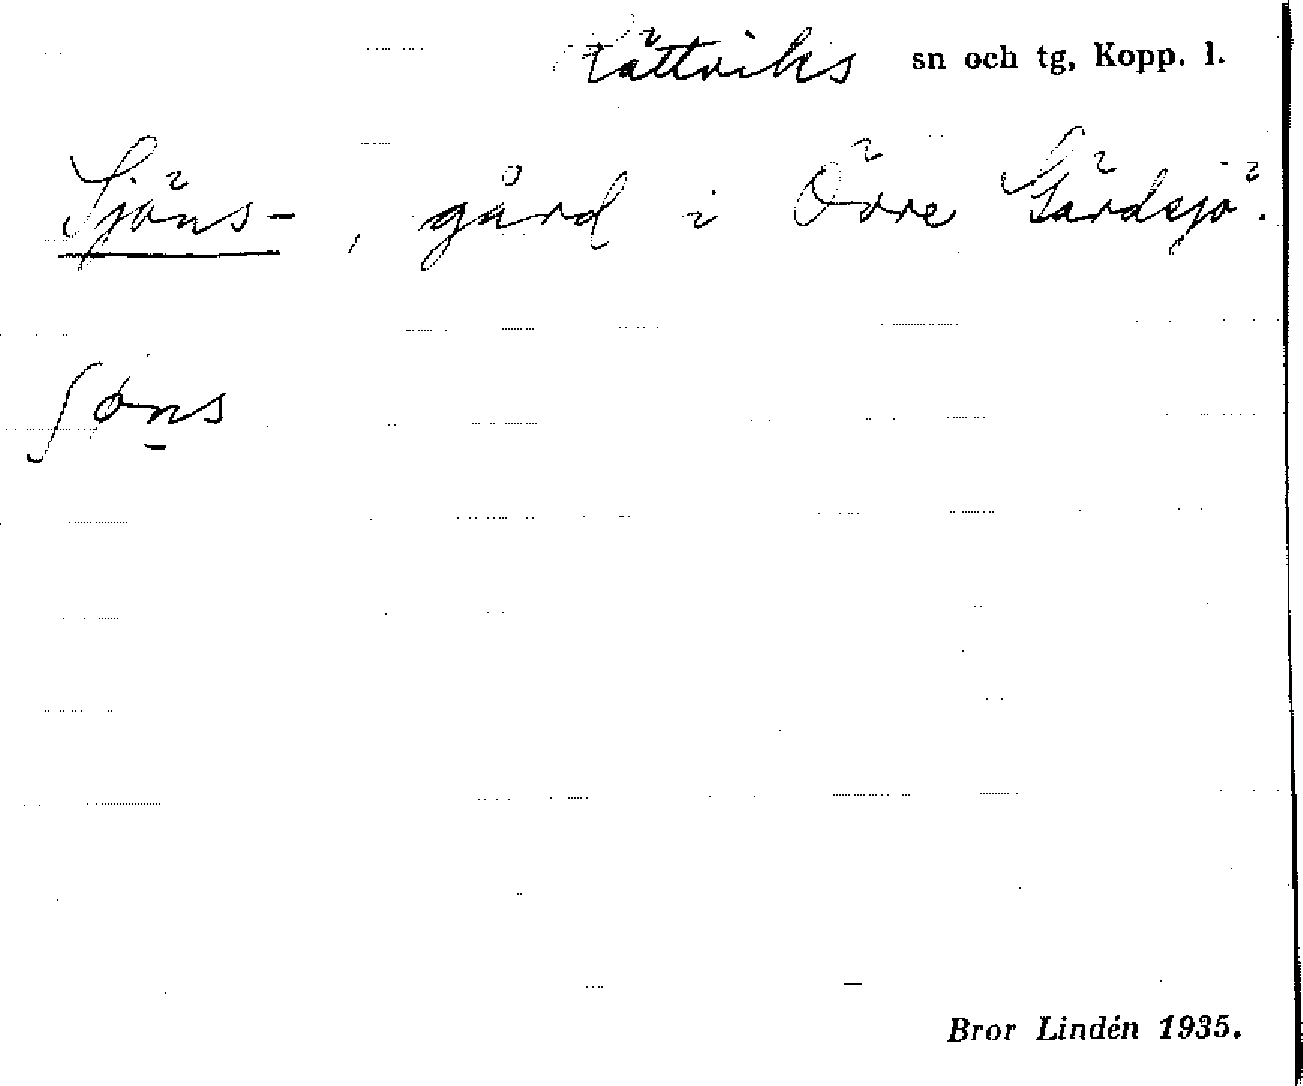 Rättviks sn och tg, Kopp. l.
Sjöns-, gård i Övre Gärdsjö.
ʃøns
Bror Lindén 1935.